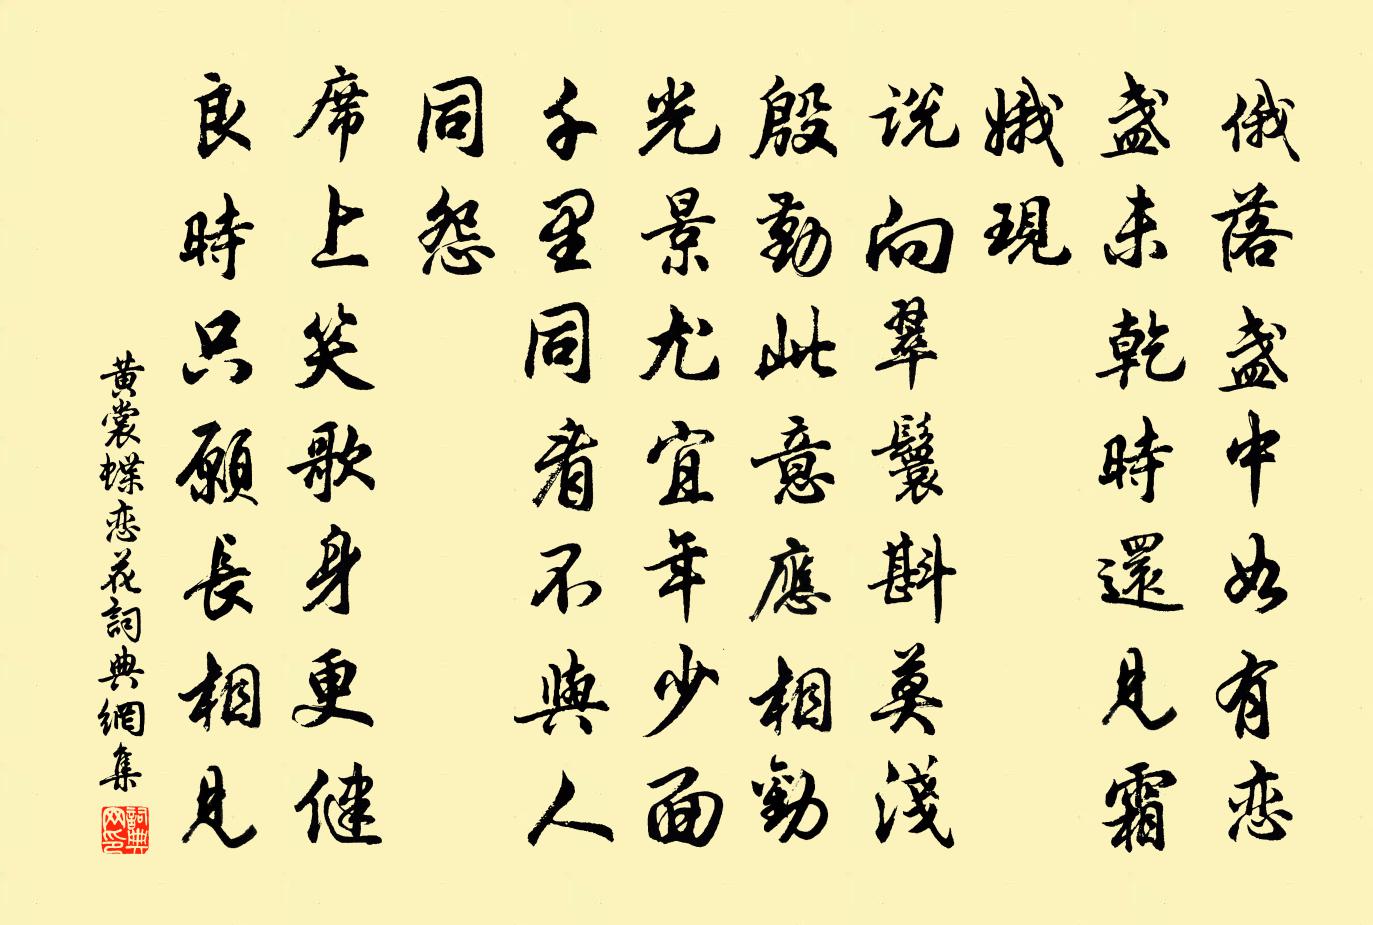 俄落盏中如有恋
盏未乾時還見霜
娥現
説向翠鬟斟莫淺
殷勤此意應相勸
光景尤宜年少面
千里同看不與人
同怨
席上笑歌身更健
良時只願長相見
黄裳蝶恋花詞典網集
詞典网印